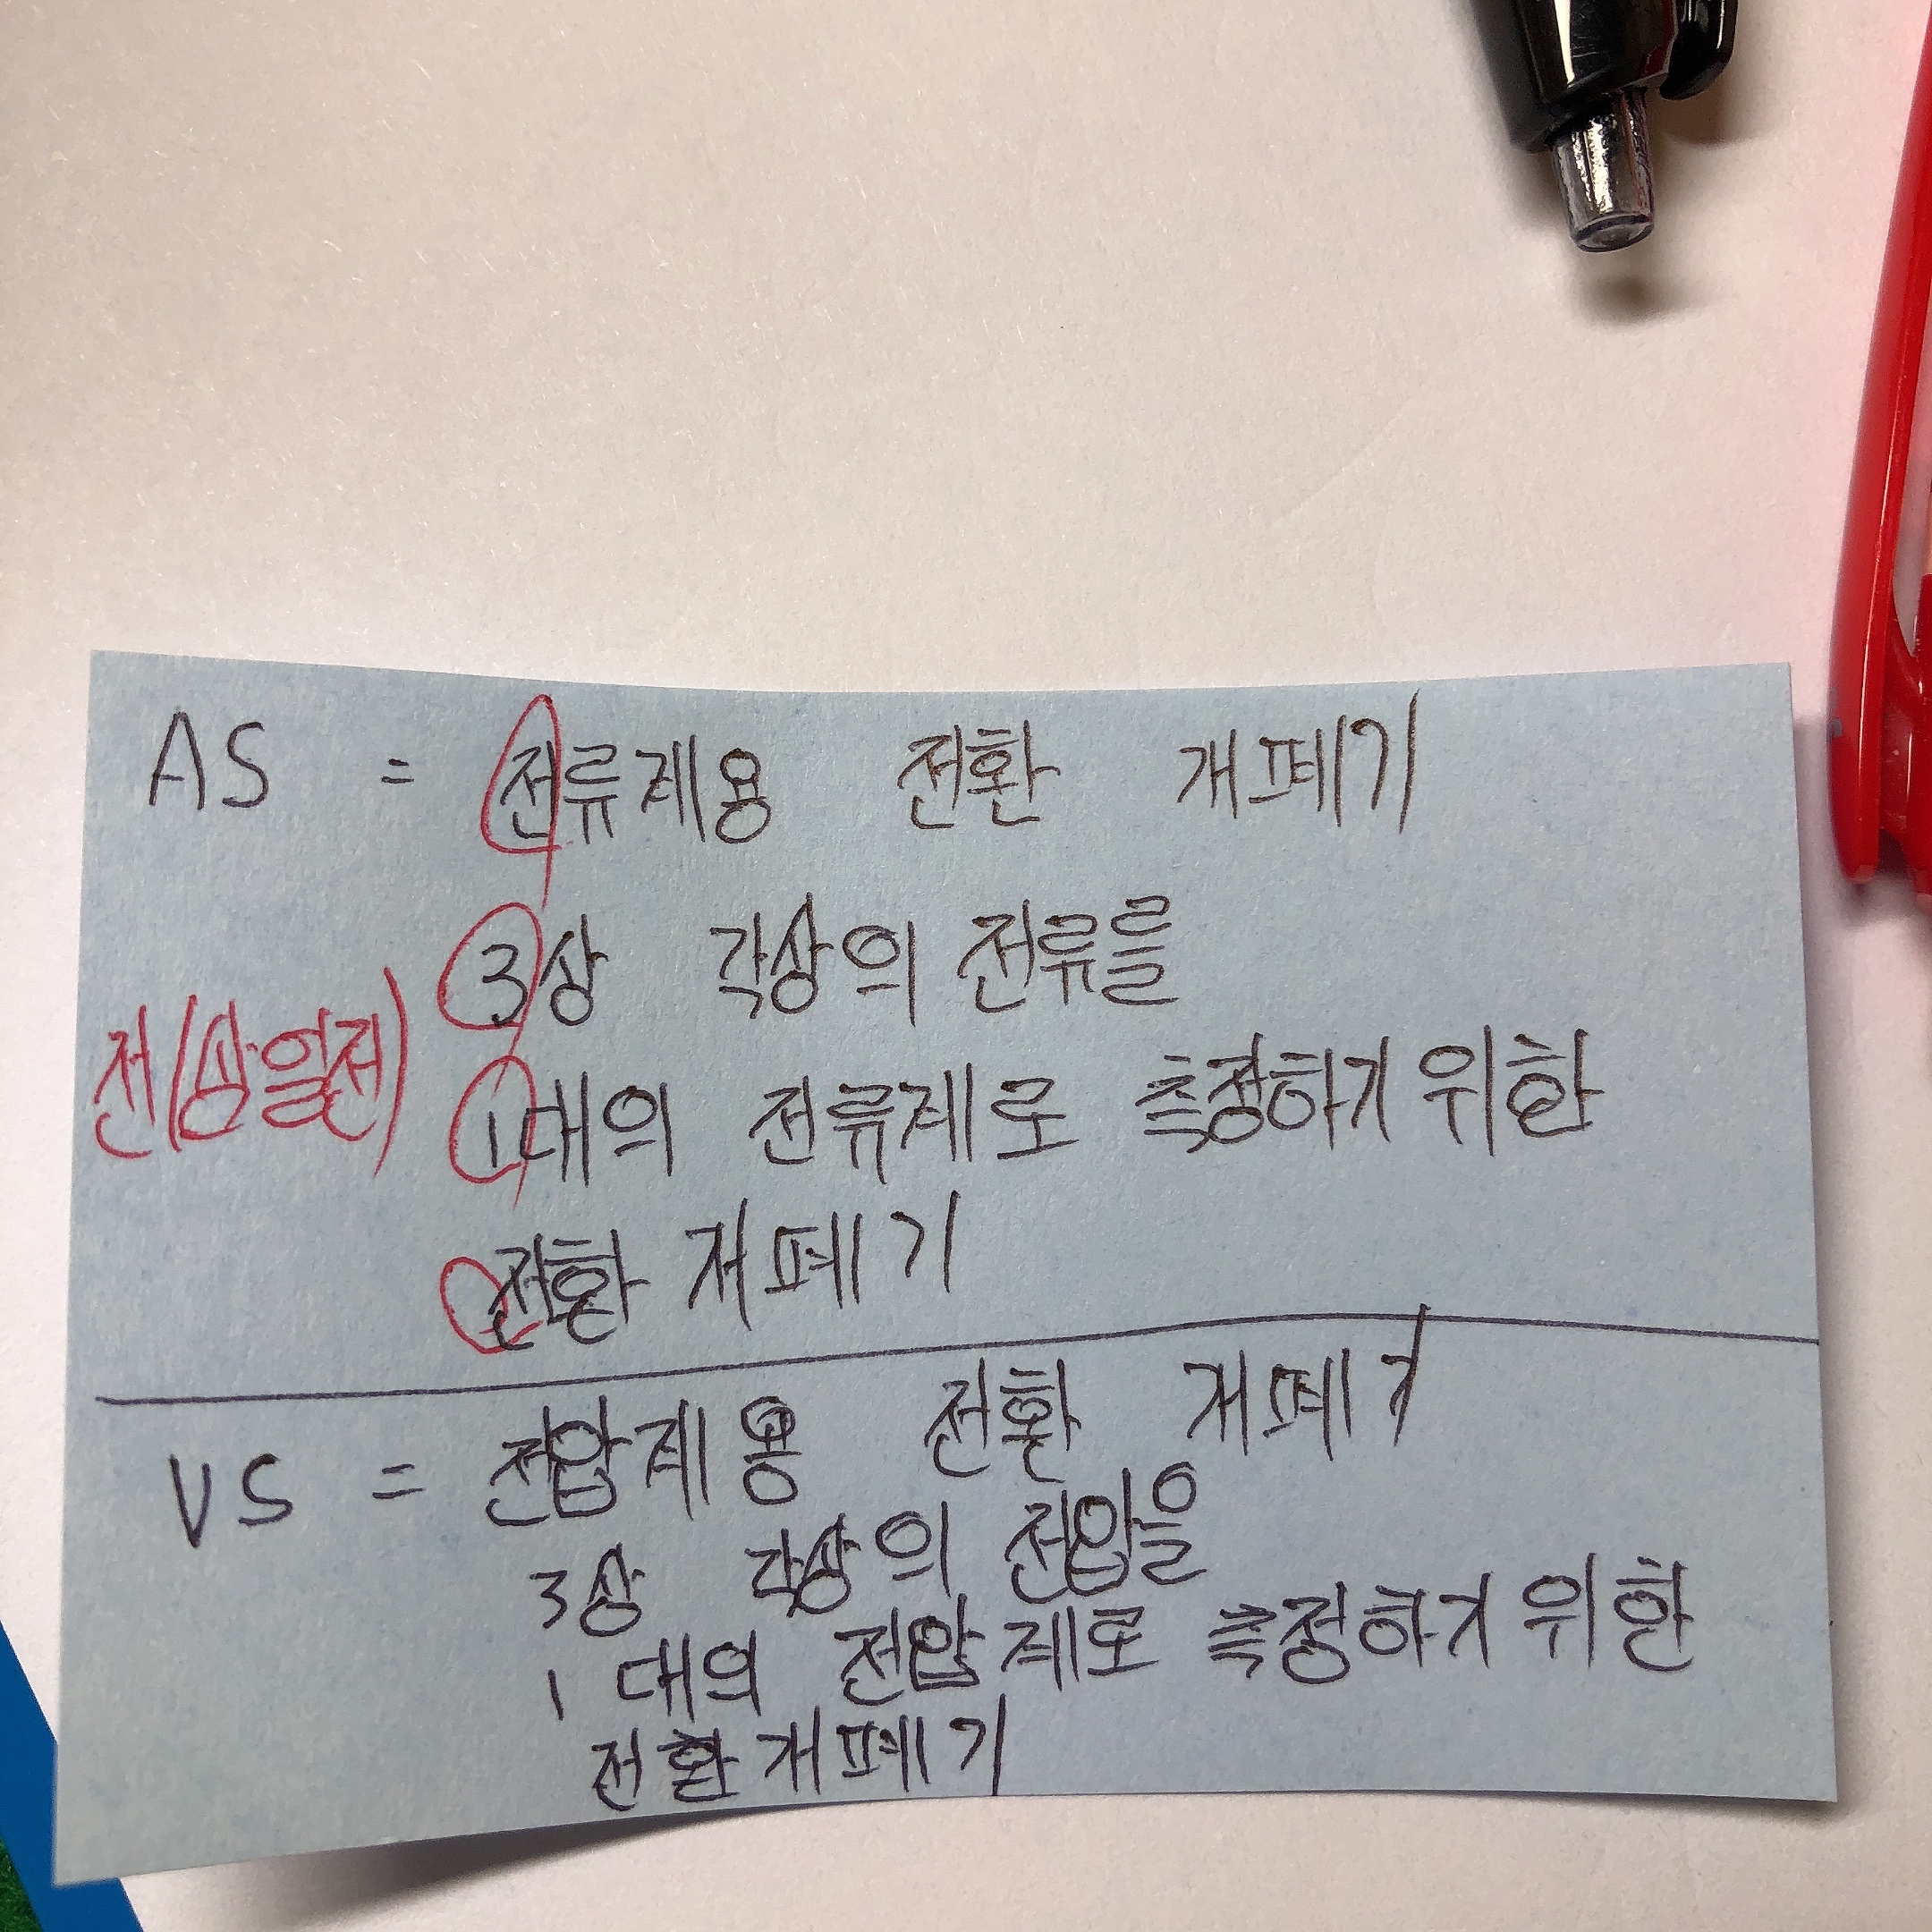 AS = 전류계용 전환 개폐기
3상 각상의 전류를
전(삼일전)
1대의 전류계로 측정하기 위한
전환 개폐기
VS = 전압계용 전환 개폐기
3상 각상의 전압을
1 대의 전압계로 측정하기 위한
전환 개폐기